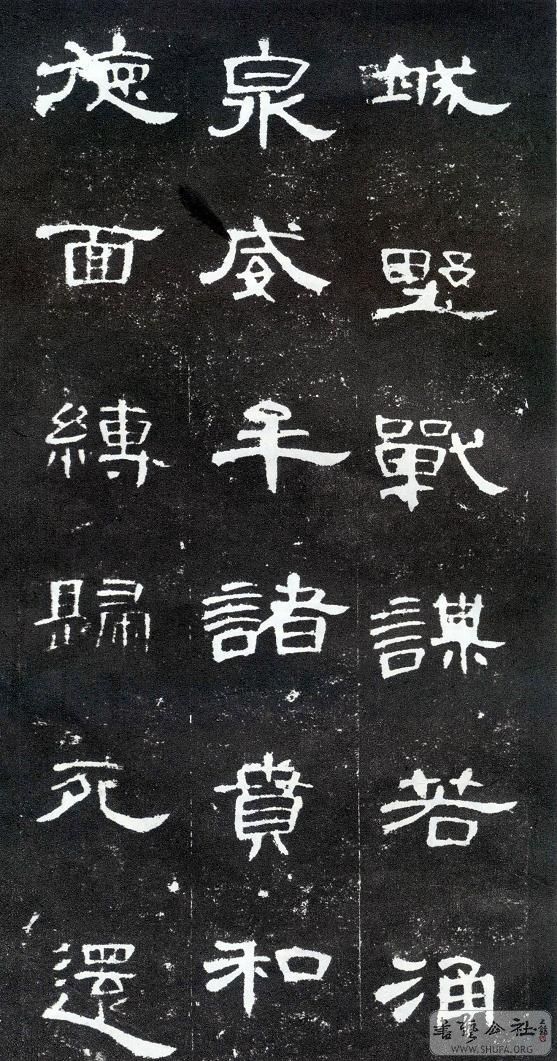 城野戰謀若涌
泉威牟諸賁和
德面縛歸死還
书艺公社
WWW.SHUFA.ORG